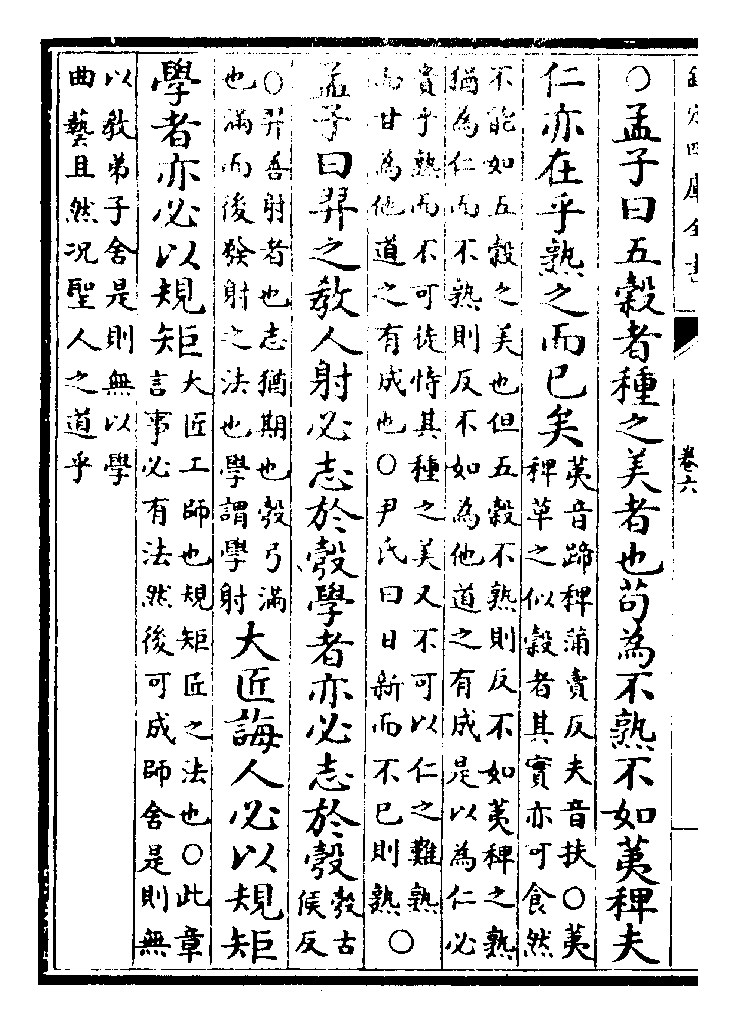 欽定四庫全書
卷六
○孟子曰五穀者種之美者也苟為不熟不如荑稗夫
仁亦在乎熟之而已矣
荑音蹄稗蒲賣反夫音扶○荑
稗草之似穀者其實亦可食然
不能如五穀之美也但五穀不熟則反不如荑稗之熟
猶為仁而不熟則反不如為他道之有成是以為仁必
貴乎熟而不可徒恃其種之美又不可以仁之難熟
而甘為他道之有成也○尹氏曰日新而不已則熟
○
孟子曰羿之教人射必志於彀學者亦必志於彀
彀古
候反
○羿善射者也志猶期也彀弓滿
也滿而後發射之法也學謂學射
大匠誨人必以規矩
學者亦必以規矩
大匠工師也規矩匠之法也○此章
言事必有法然後可成師舍是則無
以教弟子舍是則無以學
曲藝且然况聖人之道乎